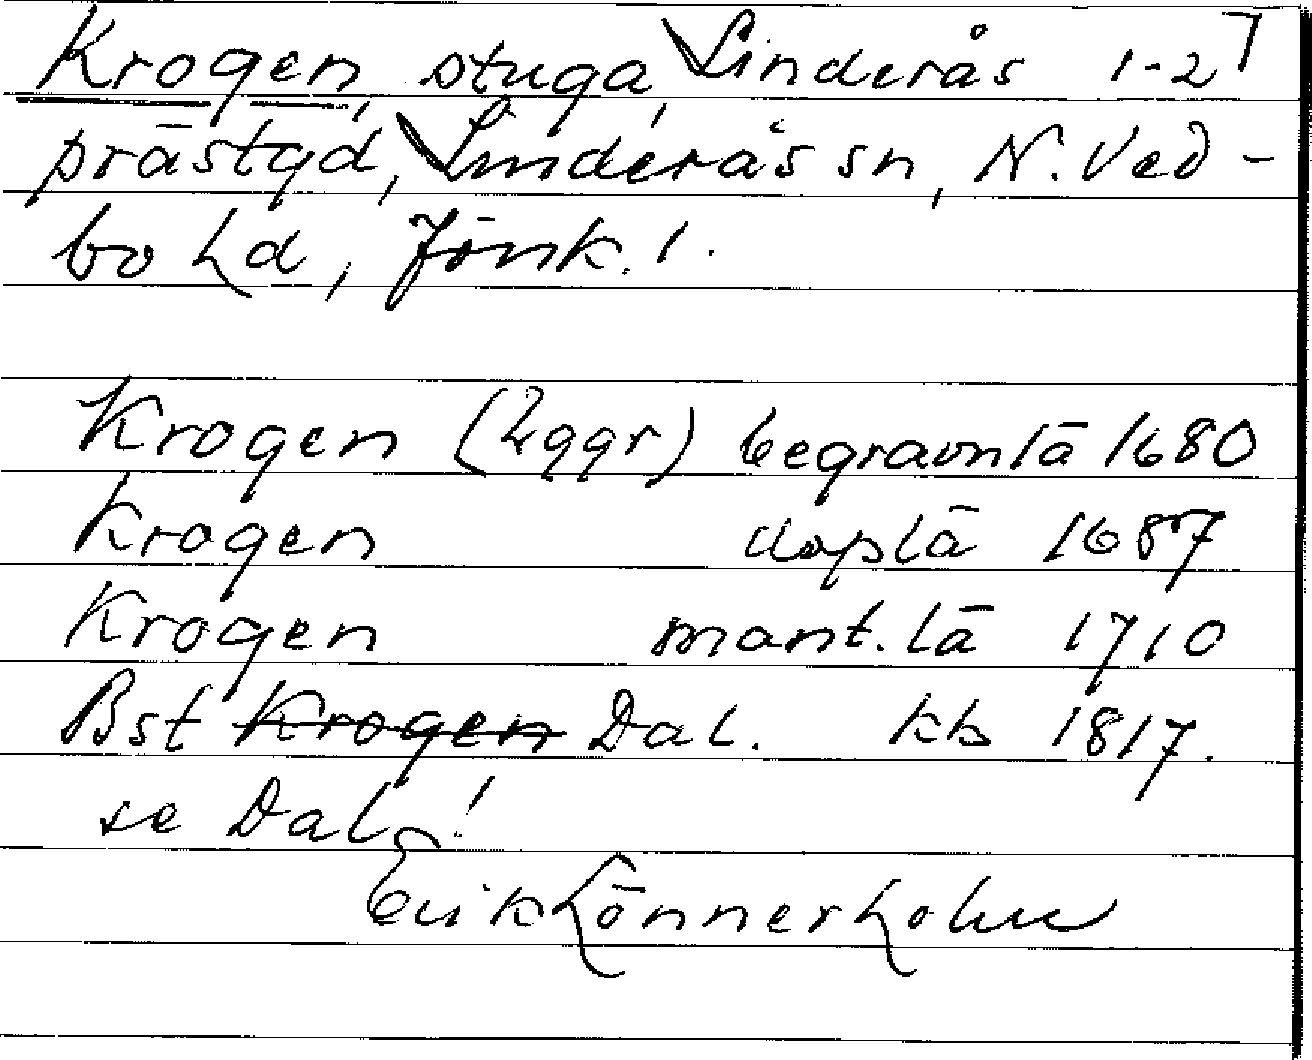 Krogen, stuga, Linderås 1-2
prästgd, Linderås sn, N. Ved-
bo hd, Jönk. l.
Krogen (hggr) begravnlä 1680
Krogen doplä 1687
Krogen mant.lä 1710
Bst Krogen Dal. kb 1817.
se Dal!
Erik Lönnerholm